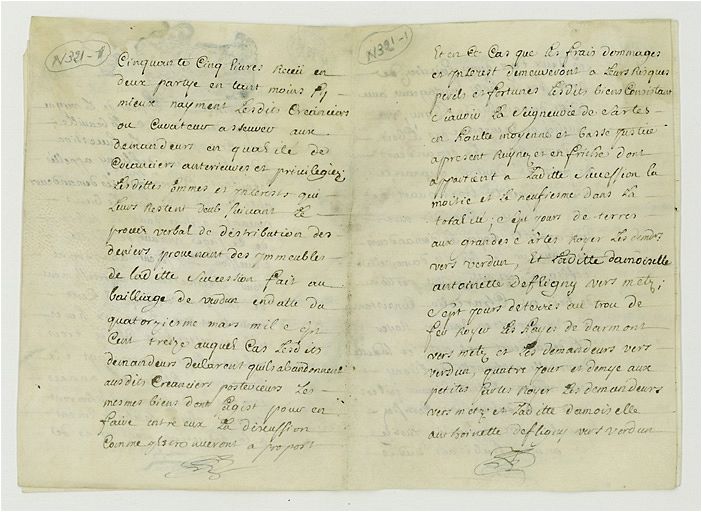 N321-1
Cinquante Cinq livres Receu en
deux partye en tant moins sy
mieux nayment Lesdits Creanciers
ou Curateur asseurer aux
demandeurs en qualité de
Creanciers anterieures et privilegiez
Lesdittes sommes et Interests qui
Leurs Restent deub suivant Le
procer verbal de distribution des
deniers provenant des Immeubles
de laditte succession fait au
bailliage de verdun en datte du
quatorziesme mars mil e sept
Cent treize auquel Cas Lesdits
demandeurs declarent quils abandonnent
ausdits Creanciers posterieurs Les
mesmes biens dont sagist pour en
faire entre eux La discussion
Comme ils trouveront a propos
N321-1
Et en Ce Cas que les frais dommages
et Interest demeureront a Leurs Risques
perils et fortunes Lesdits biens Consistant
e scavoir La seigneurie de sarles
en haulte moyenne et basse Justice
apresent Ruynez et en friche dont
appartient a laditte succession la
moitié et le neufiesme dans La
totalité, sept jours de terres
aux grandes sarles Royer Les
vers verdun, Et Laditte damoiselle
antoinette defligny vers metz,
sept jours de terres au trou de
Royer Les de darmont
vers metz et Les demandeurs vers
verdun, quatre jour et demye aux
petites sarles Royer Les demandeurs
vers metz et Laditte damoiselle
anthoinette defligny vers verdun